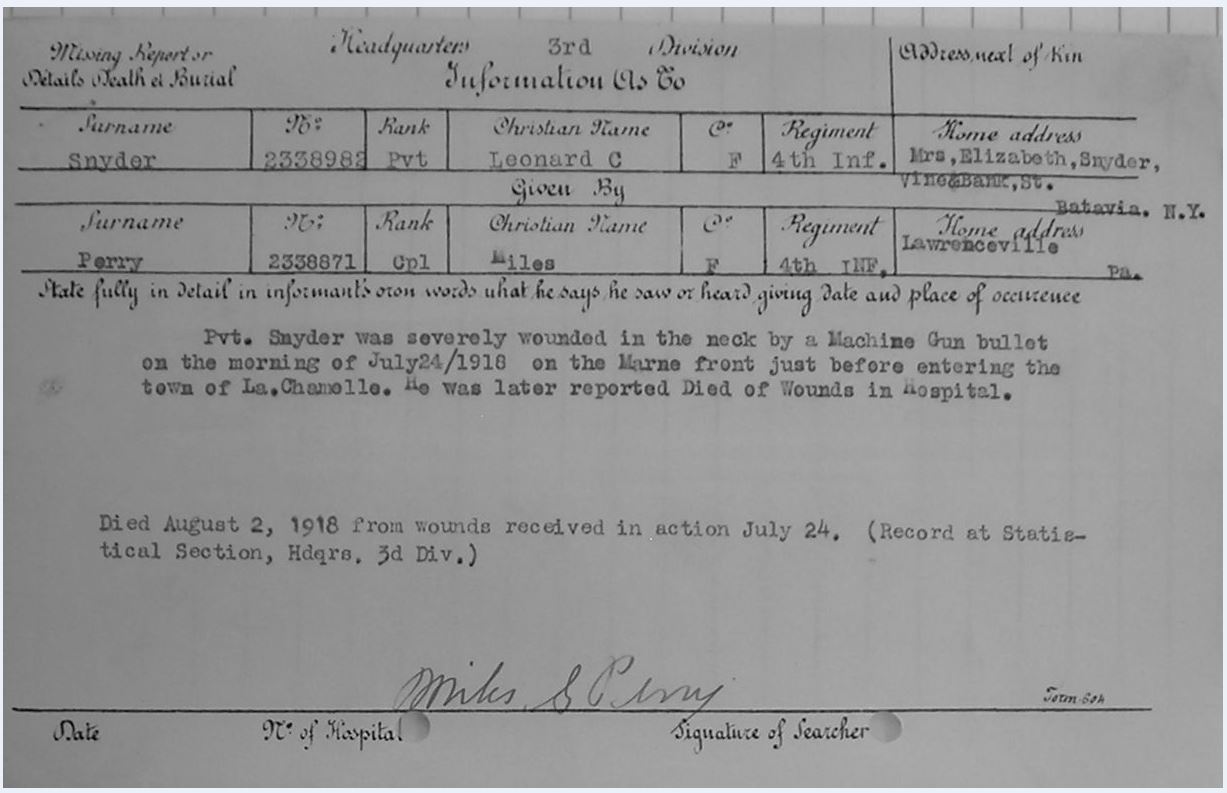 Missing Report or Headquarters 3rd Division Address, next of Kin
Details Death et Burial Information As To
Surname No: Rank Christian Name Co Regiment Home address
Snyder 2338982 Pvt Leonard C F 4th Inf. Mrs,Elizabeth,Snyder,
Given By Vine&Bank,St.
Batavia. N.Y.
Surname No: Rank Christian Name Co Regiment Home address
Lawrenceville
Perry 2338871 Cpl Miles F 4th INF. Pa.
State fully in detail in informant's own words what he says, he saw or heard, giving date and place of occurence
Pvt. Snyder was severely wounded in the neck by a Machine Gun bullet
on the morning of July24/1918 on the Marne front just before entering the
town of La.Chamelle. He was later reported Died of Wounds in Hospital.
Died August 2, 1918 from wounds received in action July 24. (Record at Statis-
tical Section, Hdqrs. 3d Div.)
Miles G Perry
Form-604
Date No: of Hospital Signature of Searcher